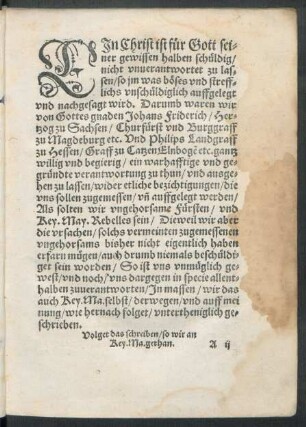 EIn Christ ist für Gott sei-
ner gewissen halben schüldig/
nicht vnuerantwortet zu las-
sen/so jm was böses vnd streff-
lichs vnschüldiglich auffgelegt
vnd nachgesagt wird. Darumb waren wir
von Gottes gnaden Johans Friderich/Her-
tzog zu Sachsen/Churfürst vnd Burggraff
zu Magdeburg etc. Vnd Philips Landgraff
zu Hessen/Graff zu Catzen Elnboge etc. gantz
willig vnd begierig/ein warhafftige vnd ge-
gründte verantwortung zu thun/vnd ausge-
hen zu lassen/wider etliche bezichtigungen/die
vns sollen zugemessen/vñ auffgelegt werden/
Als solten wir vngehorsame Fürsten/vnd
Key. May. Rebelles sein/Dieweil wir aber
die vrsachen/solchs vermeinten zugemessenen
vngehorsams bisher nicht eigentlich haben
erfarn mügen/auch drumb niemals beschüldi-
get sein worden/So ist vns vnmüglich ge-
west/vnd noch/vns dargegen in specie allent-
halben zuuerantworten/In massen/wir das
auch Key. Ma. selbst/derwegen/vnd auff mei
nung/wie hernach folget/vntertheniglich ge-
schrieben.
Volget das schreiben/so wir an
Key. Ma. gethan. A ij